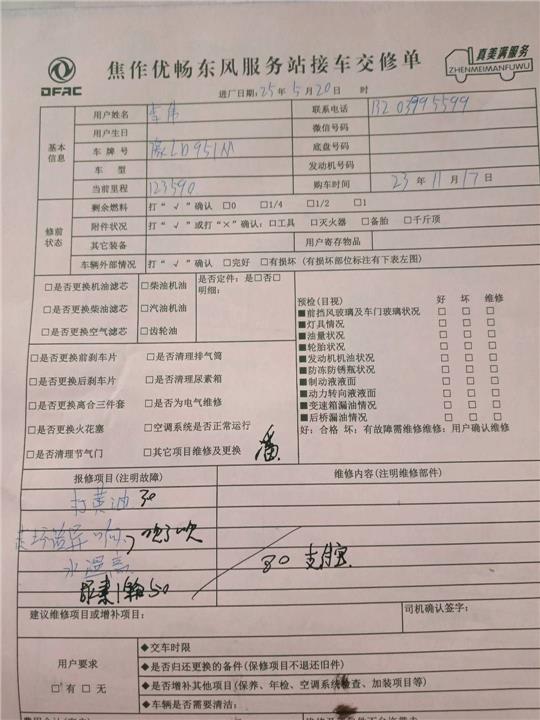 DFAC
焦作优畅东风服务站接车交修单
真美满服务
ZHENMEIMANFUWU
进厂日期:25年5月20日 时
基本信息
用户姓名 李伟 联系电话 13203995599
用户生日 微信号码
车牌号 豫LD951N 底盘号码
车型 发动机号码
当前里程 123590 购车时间 23年11月17日
修前状态
剩余燃料 打“√”确认 □0 □1/4 □1/2 □1
附件状况 打“√”或打“×”确认:□工具 □灭火器 □备胎 □千斤顶
其它装备 用户寄存物品
车辆外部情况 打“√”确认 □完好 □有损坏(有损坏部位标注有下表左图)
□是否更换机油滤芯 □柴油机油 是否定件:是□否□
明细:
□是否更换柴油滤芯 □汽油机油
□是否更换空气滤芯 □齿轮油
□是否更换前刹车片 □是否清理排气筒
□是否更换后刹车片 □是否清理尿素箱
□是否更换离合三件套 □是否为电气维修
□是否更换火花塞 □空调系统是否正常运行
□是否清理节气门 □其它项目维修及更换
预检(目视) 好 坏 维修
■前挡风玻璃及车门玻璃状况 □ □ □
■灯具情况 □ □ □
■油量状况 □ □ □
■轮胎状况 □ □ □
■发动机机油状况 □ □ □
■防冻防锈瓶状况 □ □ □
■制动液液面 □ □ □
■动力转向液液面 □ □ □
■变速箱漏油情况 □ □ □
■后桥漏油情况 □ □ □
好:合格 坏:有故障需维修维修:用户确认维修
报修项目(注明故障) 维修内容(注明维修部件)
打黄油 30
异响
水温高
80 支付宝
50
建议维修项目或增补项目: 司机确认签字:
用户要求
□有 □无
◆交车时限
◆是否归还更换的备件(保修项目不退还旧件)
◆是否增补其他项目(保养、年检、空调系统检查、加装项目等)
◆车辆是否需要清洁: